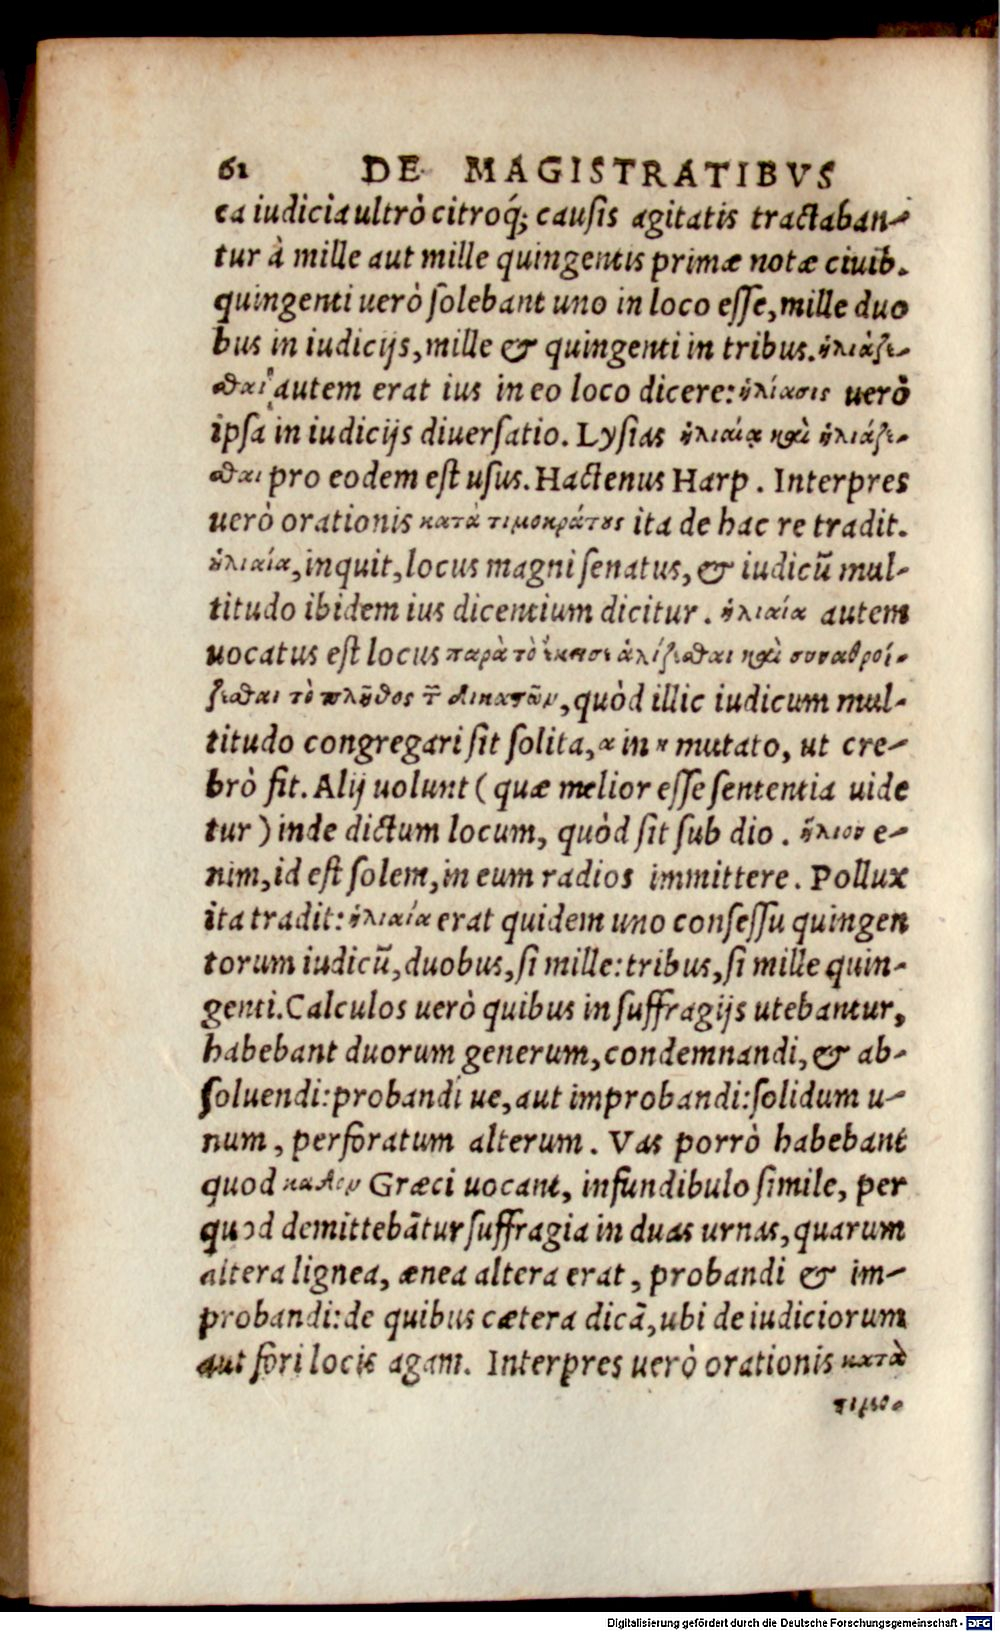 61 DE MAGISTRATIBVS
ea iudicia ultrò citroq́; causis agitatis tractaban-
tur à mille aut mille quingentis primæ notæ ciuib.
quingenti uerò solebant uno in loco esse, mille duo
bus in iudicijs, mille & quingenti in tribus. ἡλιάζε-
σθαι autem erat ius in eo loco dicere: ἡλίασις uerò
ipsa in iudicijs diuersatio. Lysias ἡλιαία καὶ ἡλιάζε-
σθαι pro eodem est usus. Hactenus Harp. Interpres
uerò orationis κατὰ τιμοκράτους ita de hac re tradit.
ἡλιαία, inquit, locus magni senatus, & iudicū mul-
titudo ibidem ius dicentium dicitur. ἡλιαία autem
uocatus est locus παρὰ τὸ ἐκεῖσε ἁλίζεσθαι καὶ συναθροί-
ζεσθαι τὸ πλῆθος τ͂ δικαστῶν, quòd illic iudicum mul-
titudo congregari sit solita, α in η mutato, ut cre-
brò fit. Alij uolunt (quæ melior esse sententia uide
tur) inde dictum locum, quòd sit sub dio. ἥλιον e-
nim, id est solem, in eum radios immittere. Pollux
ita tradit: ἡλιαία erat quidem uno consessu quingen
torum iudicū, duobus, si mille: tribus, si mille quin-
genti. Calculos uerò quibus in suffragijs utebantur,
habebant duorum generum, condemnandi, & ab-
soluendi: probandi ue, aut improbandi: solidum u-
num, perforatum alterum. Vas porrò habebant
quod καδον Græci uocant, infundibulo simile, per
quod demittebātur suffragia in duas urnas, quarum
altera lignea, ænea altera erat, probandi & im-
probandi: de quibus cætera dicā, ubi de iudiciorum
aut fori locis agam. Interpres uerò orationis κατὰ
τιμο-
Digitalisierung gefördert durch die Deutsche Forschungsgemeinschaft - DFG